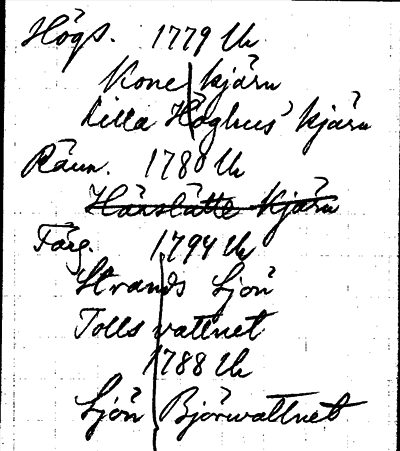 Högs. 1779 Uh
Kone kjärn
Lilla Höghus kjärn
Räun. 1780 Uh
Hänslätte kjärn
Färg. 1794 Uh
Strands Sjön
Tolls vattnet
1788 Uh
Sjön Björwattnet